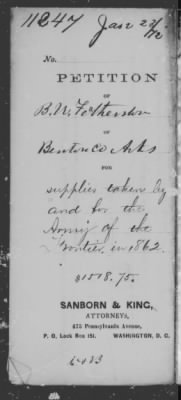 11247 Jan 23/72
No.
PETITION
OF
B. N. Fetherston
OF
Benton Co Arks
FOR
supplies taken by
and for the
Army of the
Frontier, in 1862.
$1518.75.
SANBORN & KING,
ATTORNEYS,
475 Pennsylvania Avenue,
P. O. Lock Box 151. WASHINGTON, D. C.